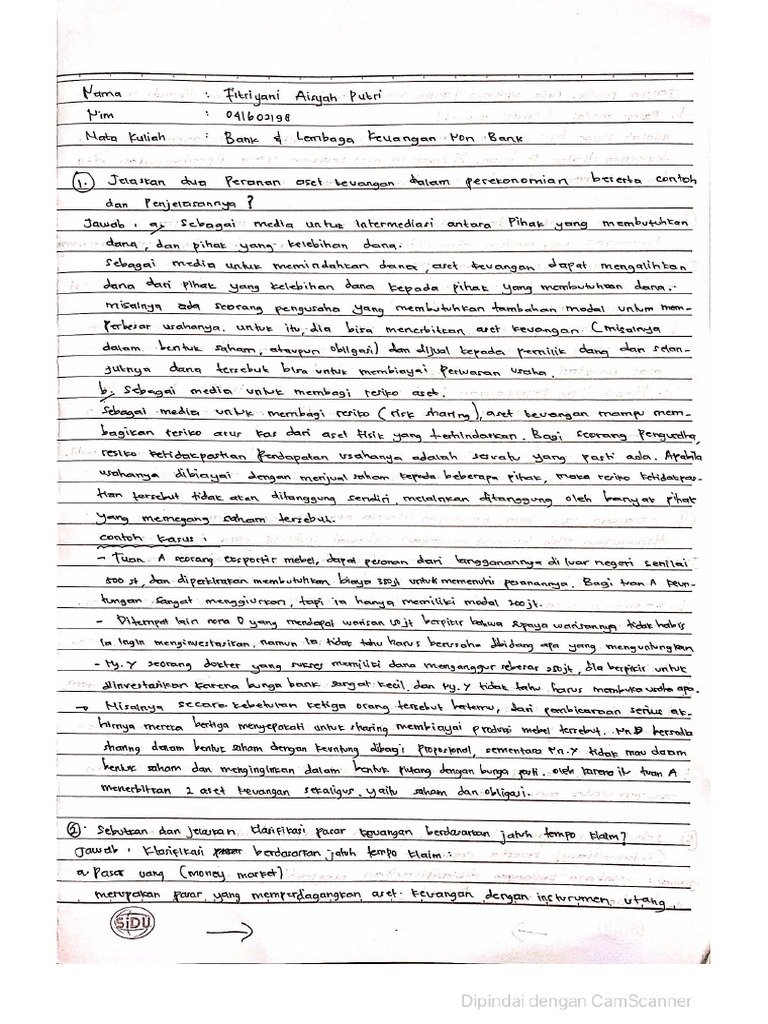 Nama : Fitriyani Aisyah Putri
Nim : 041602198
Mata Kuliah : Bank & Lembaga Keuangan Non Bank
1. Jelaskan dua Peranan aset keuangan dalam perekonomian beserta contoh
dan Penjelasannya ?
Jawab : a. Sebagai media untuk Intermediasi antara Pihak yang membutuhkan
dana, dan pihak yang kelebihan dana.
Sebagai media untuk memindahkan dana, aset keuangan dapat mengalihkan
dana dari pihak yang kelebihan dana kepada pihak yang membutuhkan dana.
misalnya ada seorang pengusaha yang membutuhkan tambahan modal untum mem-
perbesar usahanya. untuk itu, dia bisa menerbitkan aset keuangan (misalnya
dalam bentuk saham, ataupun obligasi) dan dijual kepada pemilik dana dan selan-
jutnya dana tersebut bisa untuk membiayai perluasan usaha.
b. Sebagai media untuk membagi resiko aset.
Sebagai media untuk membagi resiko (risk sharing), aset keuangan mampu mem-
bagikan resiko arus kas dari aset fisik yang terhindarkan. Bagi seorang pengusaha,
resiko ketidakpastian pendapatan usahanya adalah suatu yang pasti ada. Apabila
usahanya dibiayai dengan menjual saham kepada beberapa pihak, maka resiko ketidakpas-
tian tersebut tidak akan ditanggung sendiri, melainkan ditanggung oleh banyak pihak
yang memegang saham tersebut.
contoh kasus :
- Tuan A seorang eksportir mebel, dapat pesanan dari langganannya di luar negeri senilai
500 jt, dan diperkirakan membutuhkan biaya 350jt untuk memenuhi pesanannya. Bagi tuan A keun-
tungan sangat menggiurkan, tapi ia hanya memiliki modal 200jt.
- Ditempat lain nona D yang mendapat warisan 50jt berpikir bahwa supaya warisannya tidak habis
ia ingin menginvestasikan, namun ia tidak tahu harus berusaha dibidang apa yang menguntungkan
- Ny. Y seorang dokter yang sukses memiliki dana menganggur sebesar 250jt, dia berpikir untuk
diinvestasikan karena bunga bank sangat kecil. dan Ny. Y tidak tahu harus membuka usaha apa.
→ Misalnya secara kebetulan ketiga orang tersebut bertemu, dari pembicaraan serius ak-
hirnya mereka bertiga menyepakati untuk sharing membiayai produksi mebel tersebut. Nn.D bersedia
sharing dalam bentuk saham dengan keuntung dibagi proposional, sementara Nn.Y tidak mau dalam
bentuk saham dan menginginkan dalam bentuk piutang dengan bunga pasti. oleh karena itu tuan A
menerbitkan 2 aset keuangan sekaligus, yaitu saham dan obligasi.
2. Sebutkan dan jelaskan klasifikasi pasar keuangan berdasarkan jatuh tempo klaim?
Jawab : Klasifikasi berdasarkan jatuh tempo klaim :
a. Pasar uang (money market)
merupakan pasar yang memperdagangkan aset keuangan dengan instrumen utang,
SiDU
Dipindai dengan CamScanner